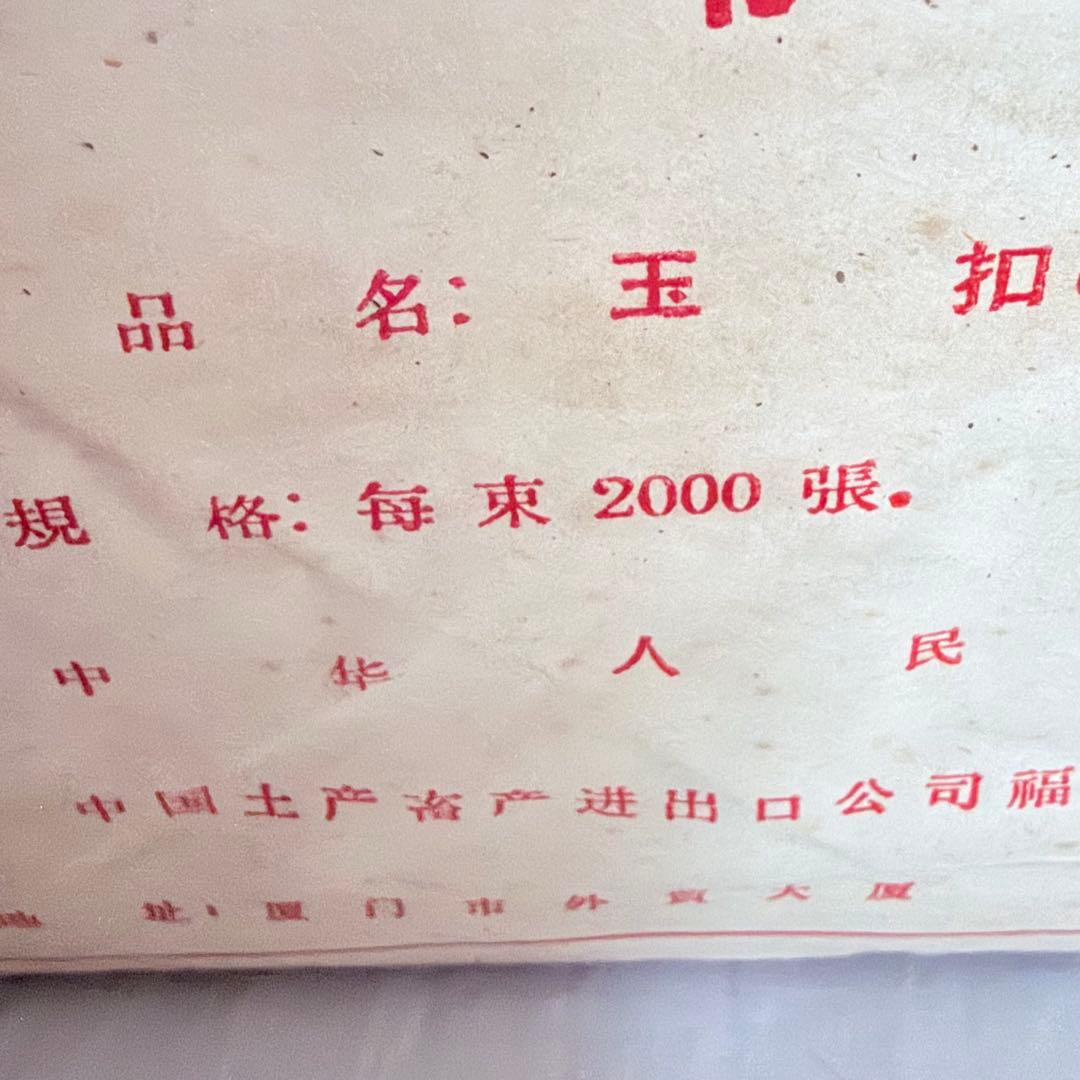 品 名：玉 扣
規 格：每束2000張.
中 华 人 民
中国土产畜产进出口公司福
地 址：厦门市外贸大厦